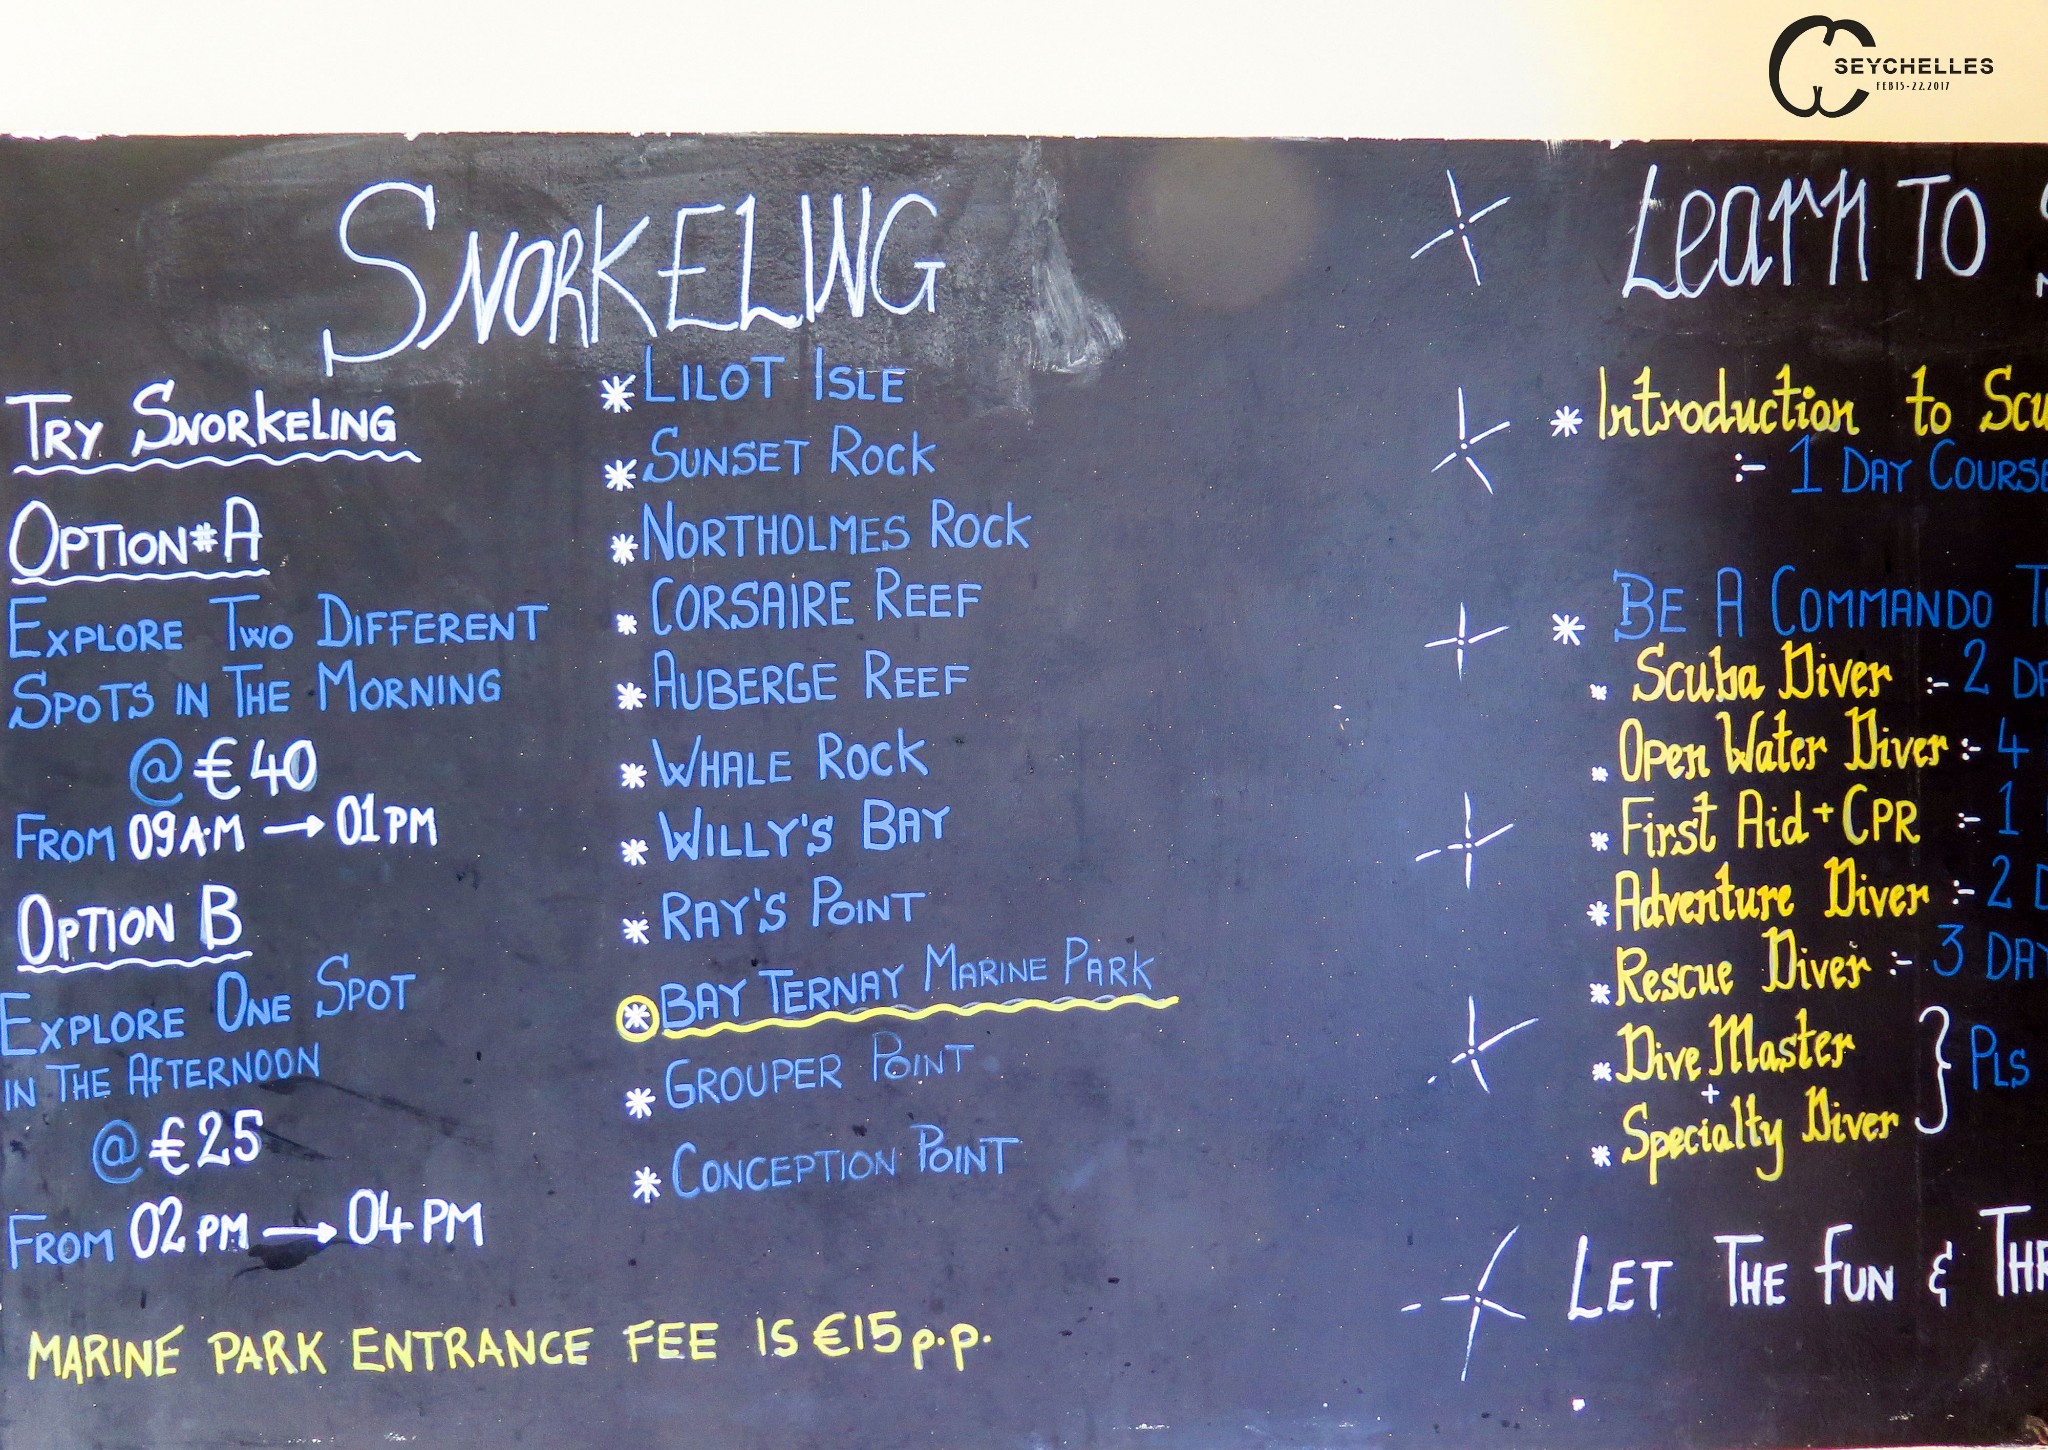 SEYCHELLES
FEB15-22.2017
SNORKELING
TRY SNORKELING
OPTION#A
EXPLORE TWO DIFFERENT
SPOTS IN THE MORNING
@ €40
FROM 09A.M → 01PM
OPTION B
EXPLORE ONE SPOT
IN THE AFTERNOON
@ €25
FROM 02 PM → 04 PM
MARINE PARK ENTRANCE FEE IS €15 p.p.
* LILOT ISLE
* SUNSET ROCK
* NORTHOLMES ROCK
* CORSAIRE REEF
* AUBERGE REEF
* WHALE ROCK
* WILLY'S BAY
* RAY'S POINT
* BAY TERNAY MARINE PARK
* GROUPER POINT
* CONCEPTION POINT
Learn TO
* Introduction to Scu
:- 1 DAY COURSE
* BE A COMMANDO
* Scuba Diver :- 2
* Open Water Diver :- 4
* First Aid + CPR :- 1
* Adventure Diver :- 2
* Rescue Diver :- 3 DAY
* Dive Master } PLS
+
* Specialty Diver
LET THE FUN & THR